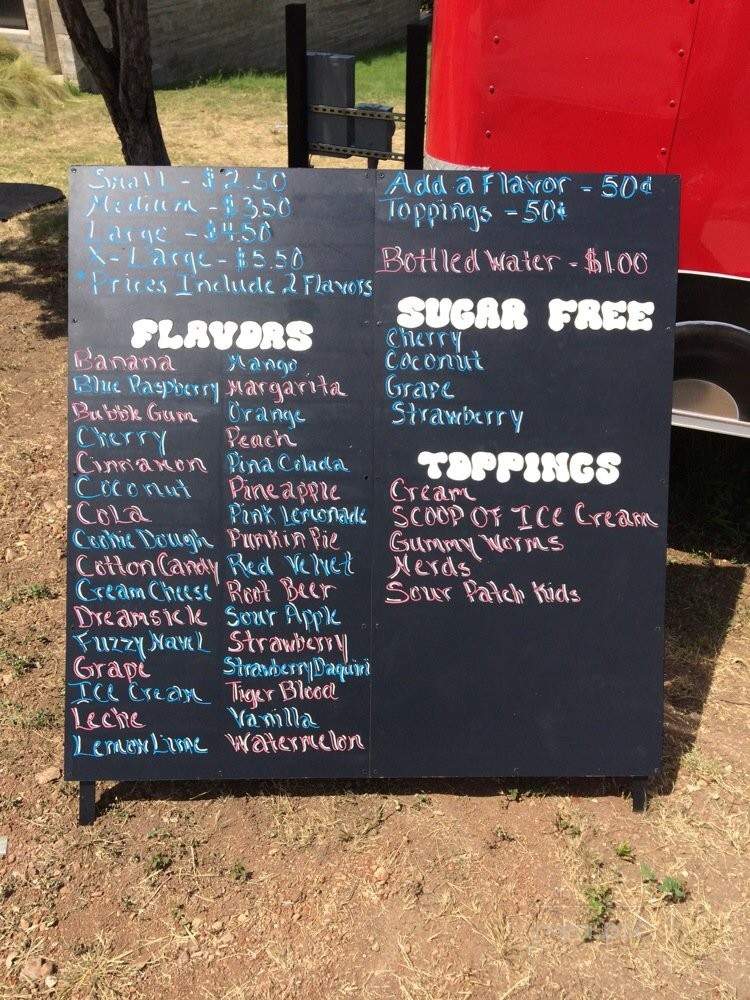 Small - $2.50
Medium - $3.50
Large - $4.50
X-Large - $5.50
*Prices Include 2 Flavors
FLAVORS
Banana
Blue Raspberry
Bubble Gum
Cherry
Cinnamon
Coconut
Cola
Cookie Dough
Cotton Candy
Cream Cheese
Dreamsicle
Fuzzy Navel
Grape
Ice Cream
Leche
Lemon Lime
Mango
Margarita
Orange
Peach
Pina Colada
Pineapple
Pink Lemonade
Pumkin Pie
Red Velvet
Root Beer
Sour Apple
Strawberry
Strawberry Daquiri
Tiger Blood
Vanilla
Watermelon
Add a Flavor - 50¢
Toppings - 50¢
Bottled Water - $1.00
SUGAR FREE
Cherry
Coconut
Grape
Strawberry
TOPPINGS
Cream
SCOOP OF ICE Cream
Gummy Worms
Nerds
Sour Patch Kids